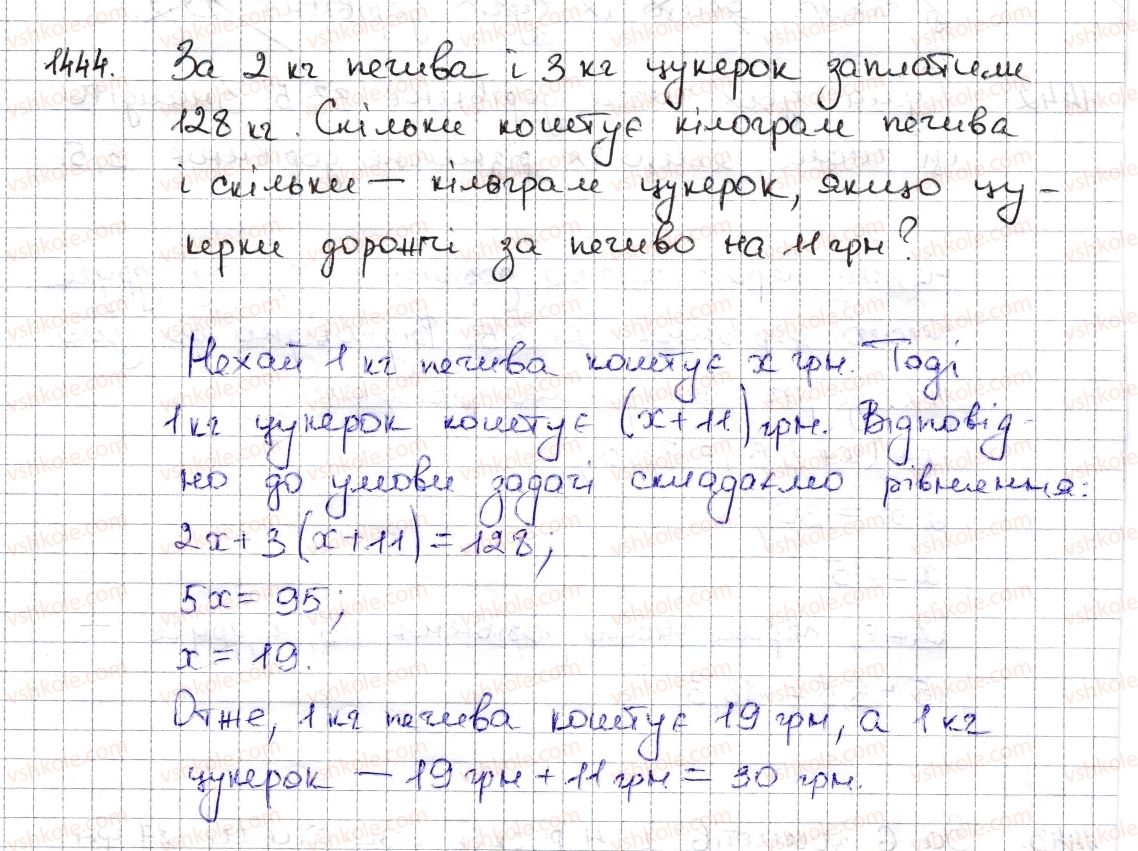 1444. За 2 кг печива і 3 кг цукерок заплатили
128 кг. Скільки коштує кілограм печива
і скільки — кілограм цукерок, якщо цу-
керки дорожчі за печиво на 11 грн?
Нехай 1 кг печива коштує x грн. Тоді
1 кг цукерок коштує (x+11) грн. Відповід-
но до умови задачі складаємо рівняння:
2x+3(x+11)=128;
5x=95;
x=19.
Отже, 1 кг печива коштує 19 грн, а 1 кг
цукерок — 19 грн + 11 грн = 30 грн.